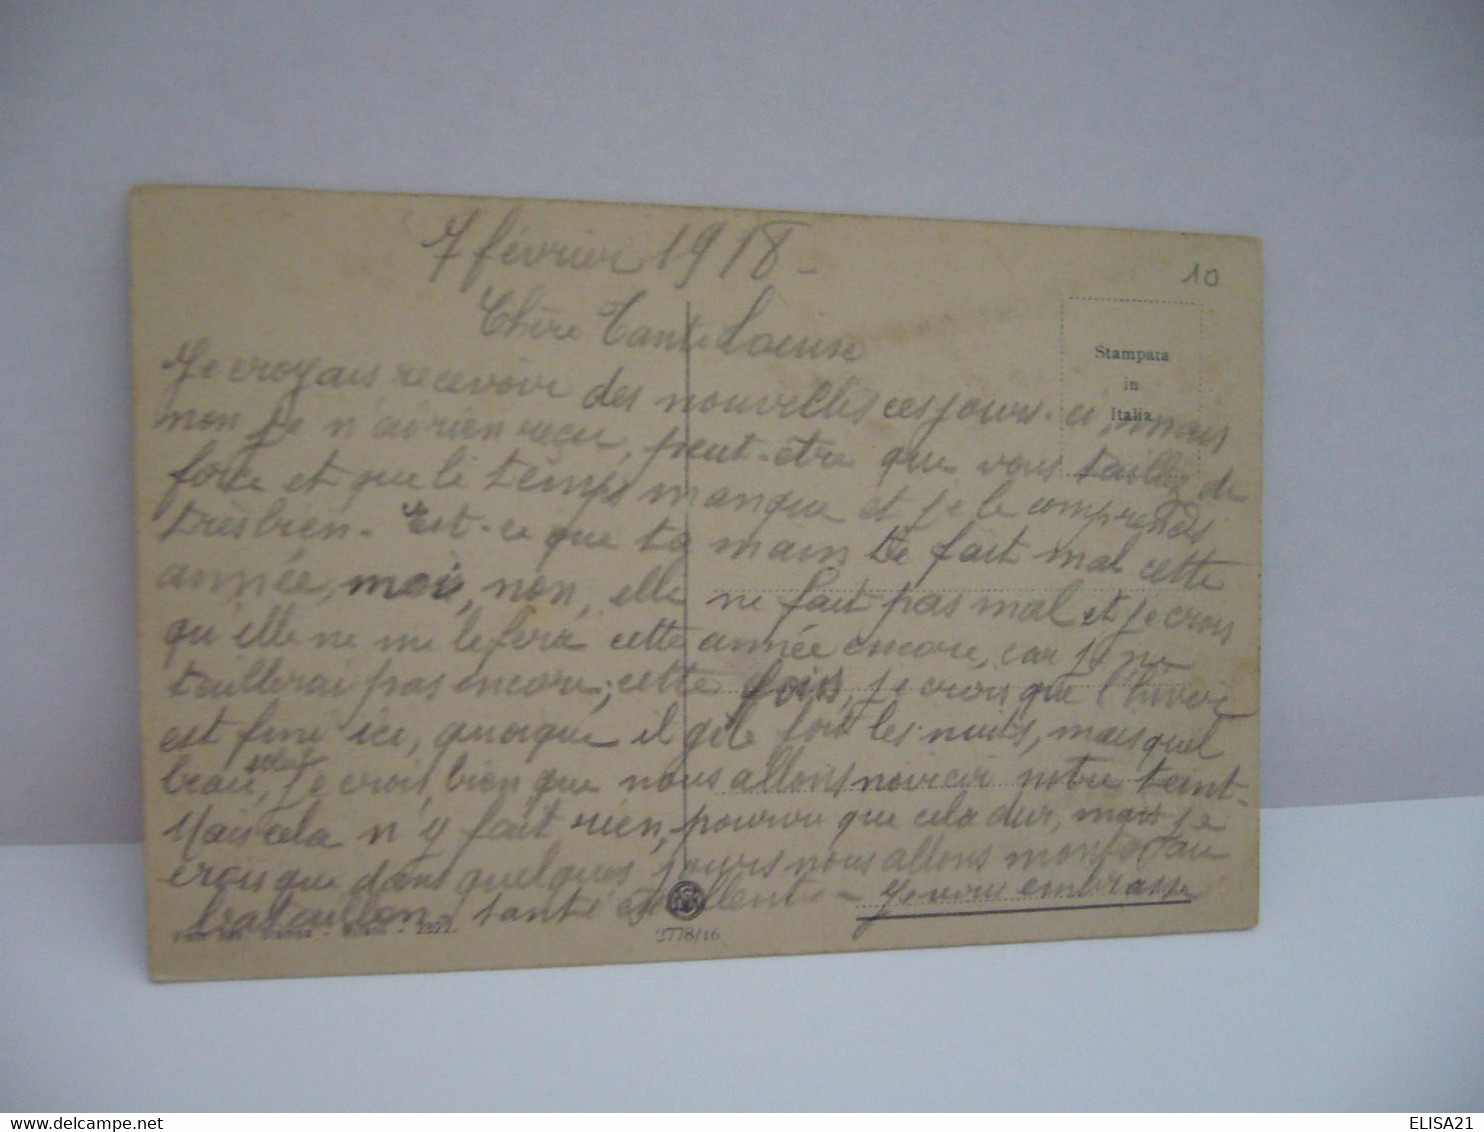 7 février 1918 -
10
Chère Tante Louise
Stampata
in
Italia
Je croyais recevoir des nouvelles ces jours-ci, mais
non je n'ai rien reçu, peut-être que vous taillez de
force et que le temps manque et je le comprends
très bien - Est-ce que ta main te fait mal cette
année, moi, non, elle ne fait pas mal et je crois
qu'elle ne me le fera cette année encore, car je ne
taillerai pas encore, cette fois, je crois que l'hiver
est fini ici, quoique il gèle fort les nuits, mais quel
beau soleil, je crois bien que nous allons noircir notre teint -
Mais cela n'y fait rien, pourvu que cela dur, mais je
crois que dans quelques jours nous allons monter au
bataillon - santé excellente - Je vous embrasse
2778/16
ELISA21